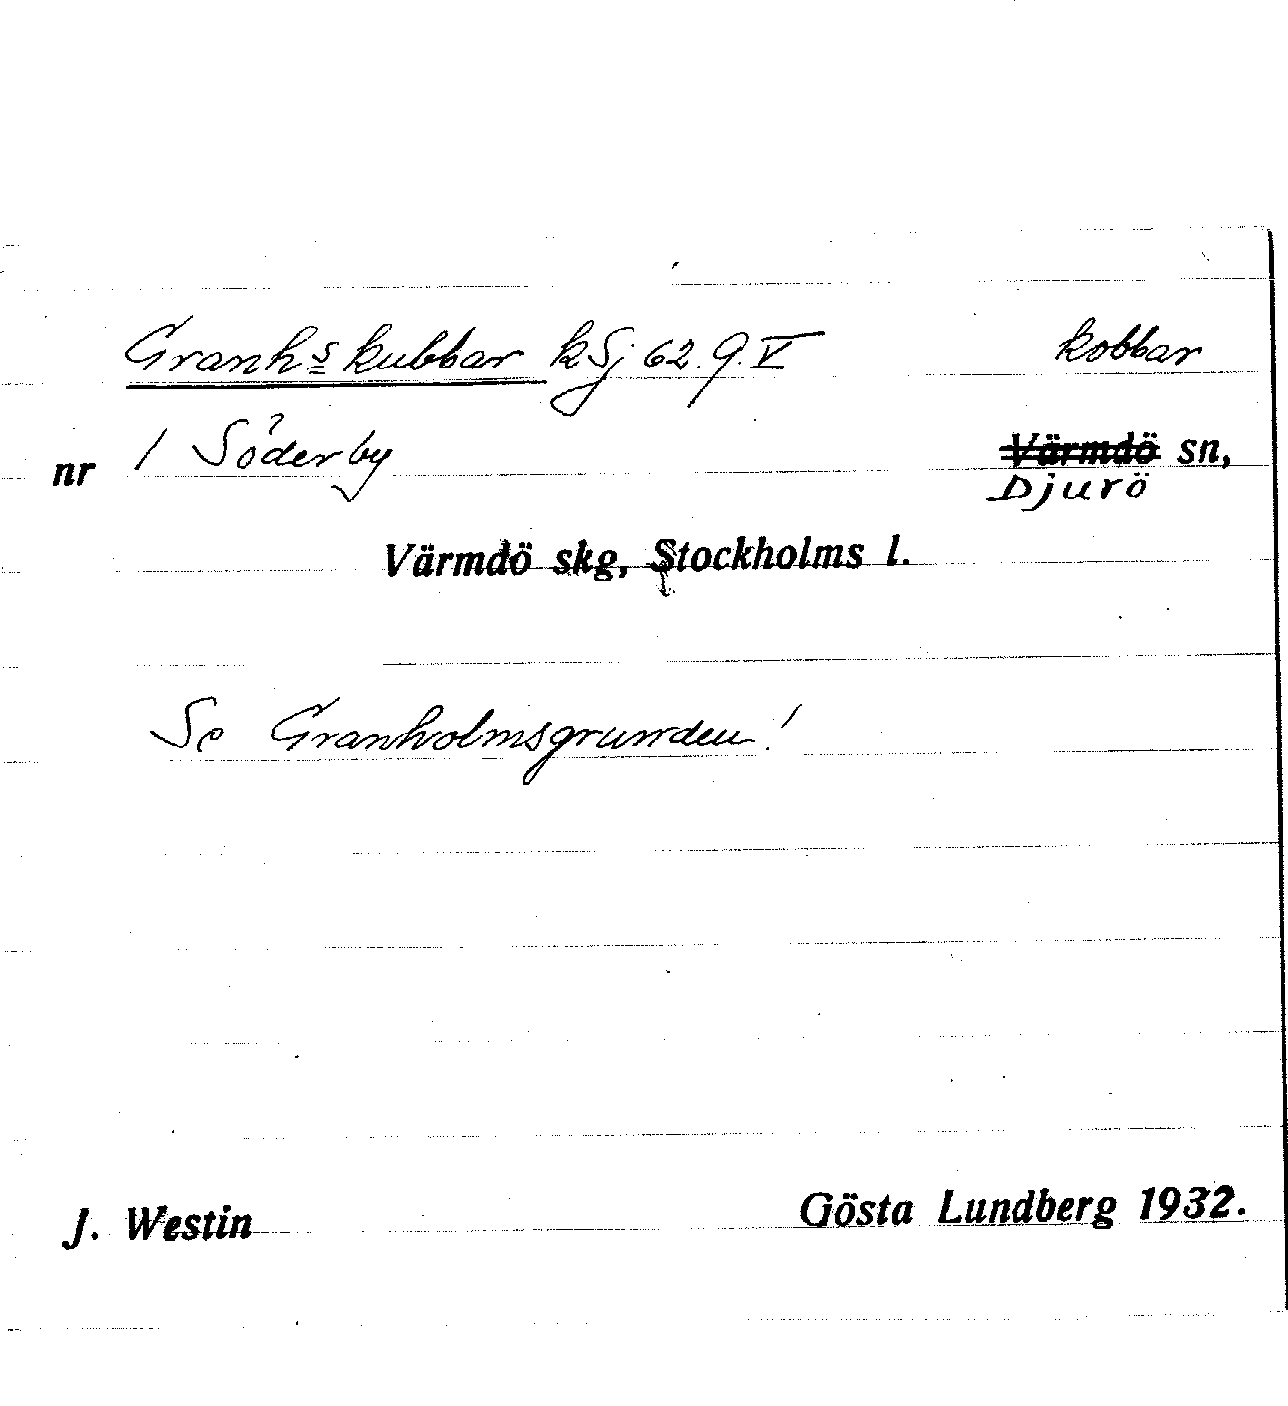 Granhs kubbar kSj 62. 9. V kobbar
nr 1 Söderby Värmdö sn,
Djurö
Värmdö skg, Stockholms l.
Se Granholmsgrunden!
J. Westin Gösta Lundberg 1932.